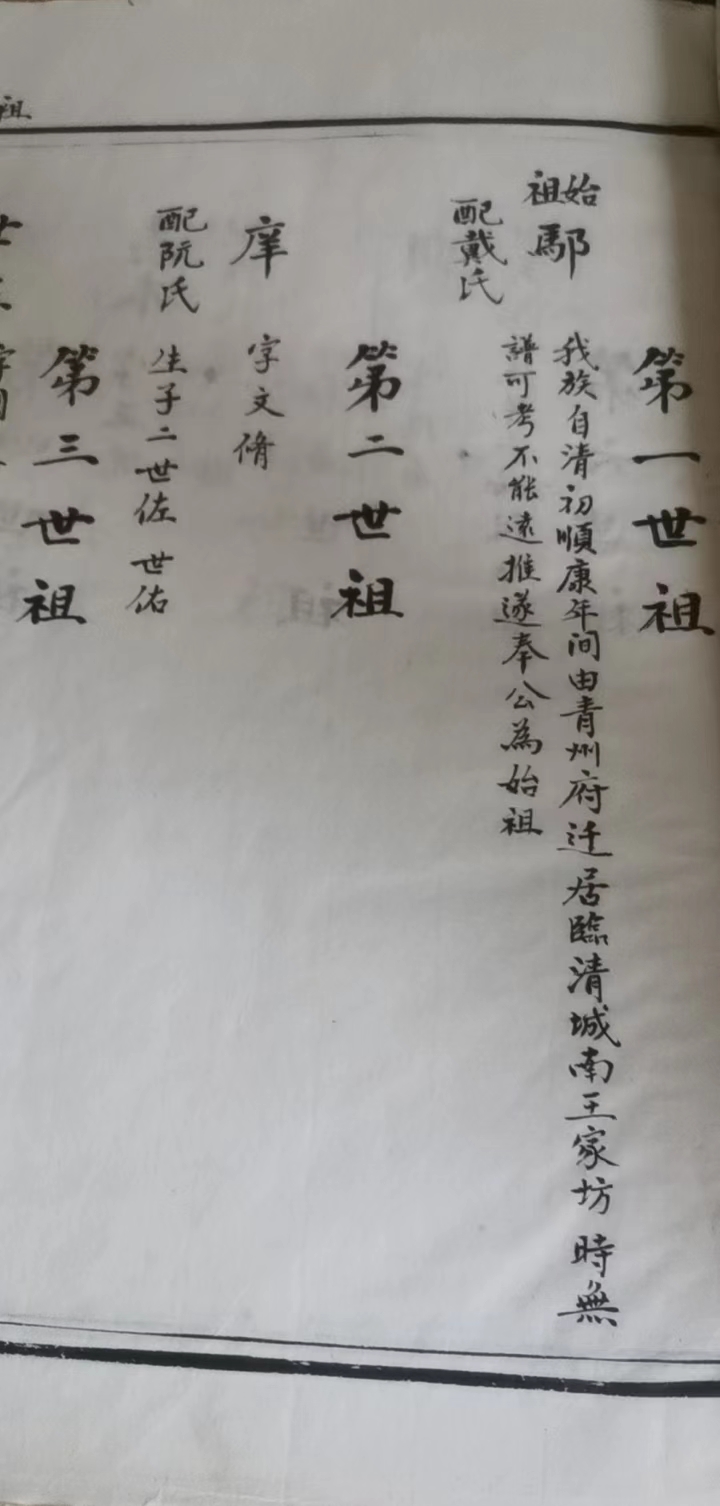 第一世祖
始祖 鄢
我族自清初順康年间由青州府迁居臨清城南王家坊 時無
譜可考不能遠推遂奉公為始祖
配戴氏
第二世祖
庠 字文脩
配阮氏 生子二世佐 世佑
第三世祖
祖